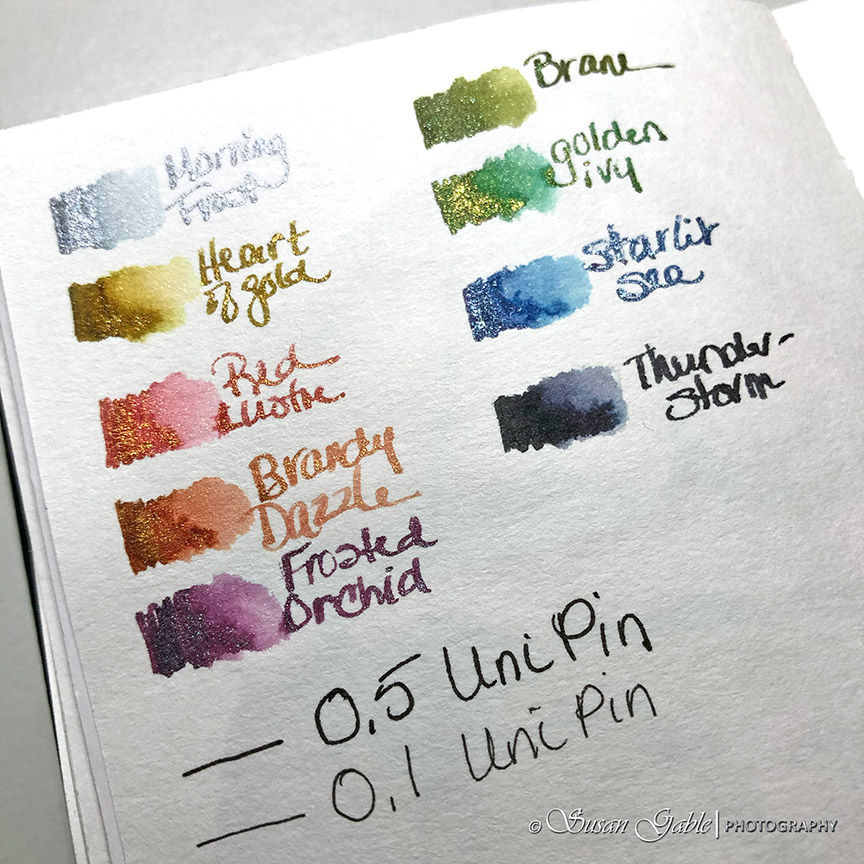 Morning
Frost
Heart
of gold
Red
Lustre.
Brandy
Dazzle
Frosted
Orchid
Brane
golden
ivy
Starlit
Sea
Thunder-
storm
0.5 Uni Pin
0.1 Uni Pin
© Susan Gable | PHOTOGRAPHY